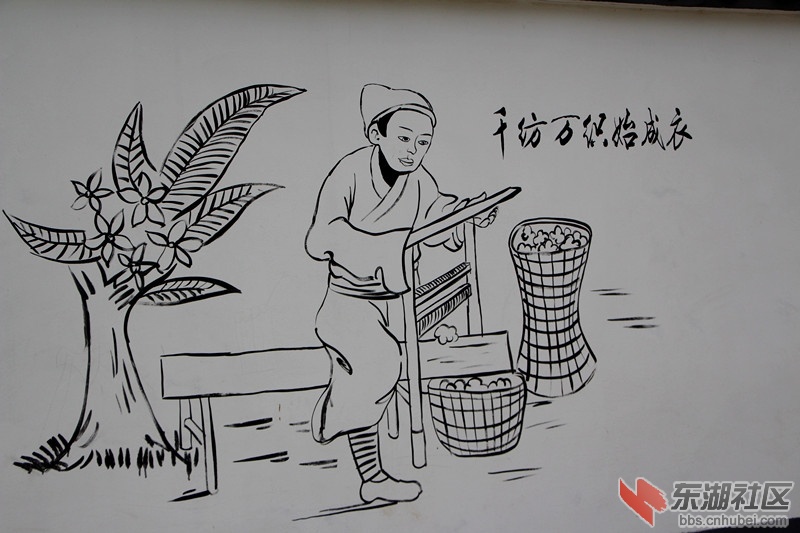 千纺万织始成衣
东湖社区
bbs.cnhubei.com